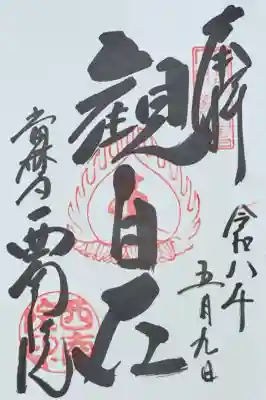 奉拝
令和八年
五月九日
観自在
當麻寺 西南院